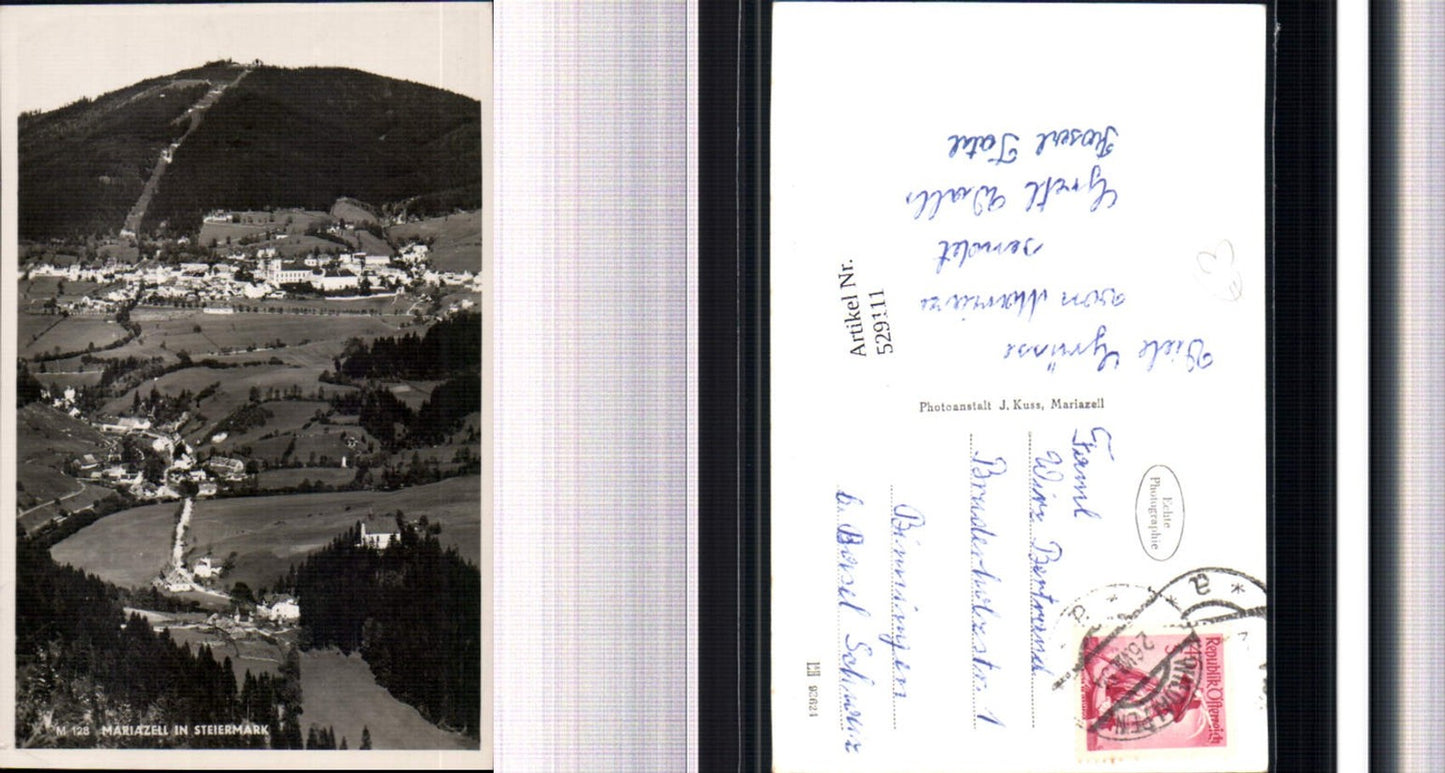 M 128 MARIAZELL IN STEIERMARK
Artikel Nr.
529111
Viele Grüsse
von
sendet
Gretl Walls
Roserl
Photoanstalt J. Kuss, Mariazell
Echte
Photographie
Faml
Wirz Bertrand
Bruderholzstr. 1
Binningen
b. Basel Schweiz
Republik Österreich
26.VII.54
a
93624